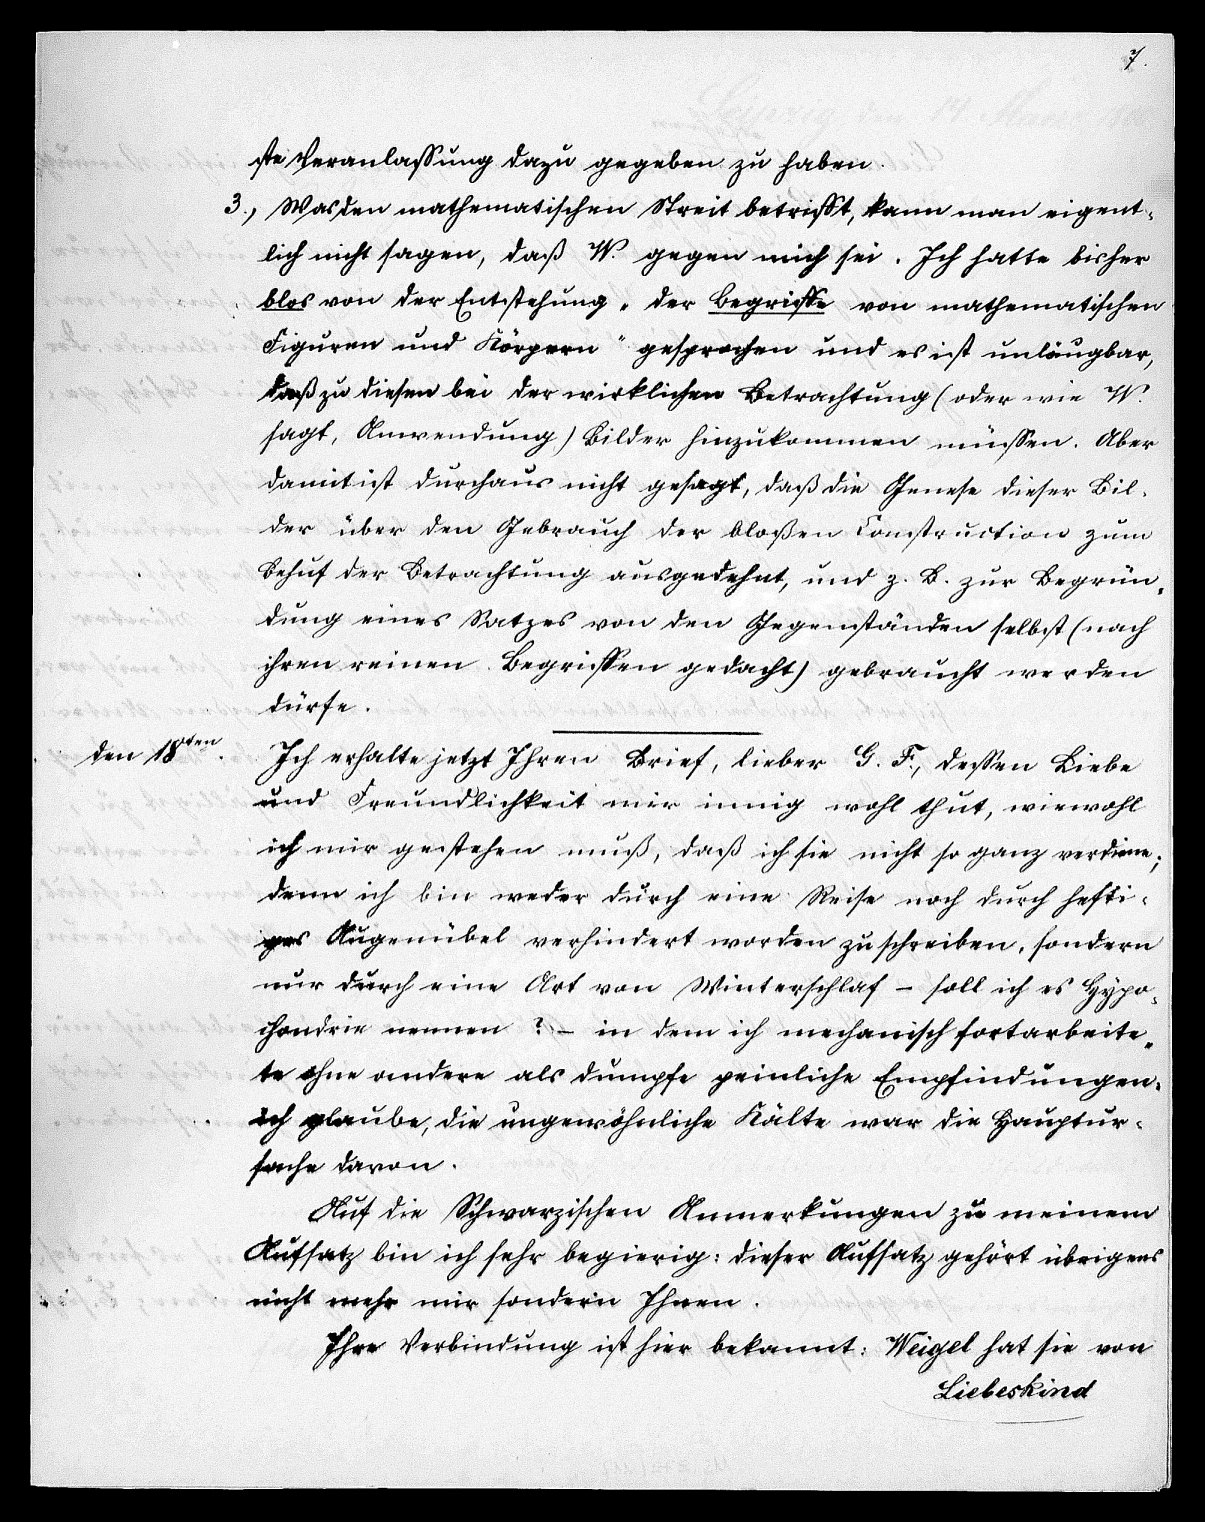 7.
ste Veranlassung dazu gegeben zu haben.
3., Was den mathematischen Streit betrifft, kann man eigent-
lich nicht sagen, daß W. gegen mich sei. Ich hatte bisher
blos von der Entstehung „der Begriffe von mathematischen
Figuren und Körpern“ gesprochen und es ist unläugbar,
daß zu diesen bei der wirklichen Betrachtung (oder wie W.
sagt, Anwendung) Bilder hinzukommen müssen. Aber
damit ist durchaus nicht gesagt, daß die Genese dieser Bil-
der über den Gebrauch der bloßen Construction zum
Behuf der Betrachtung ausgedehnt, und z. B. zur Begrün-
dung eines Satzes von den Gegenständen selbst (nach
ihren reinen Begriffen gedacht) gebraucht werden
dürfe.
den 18ten. Ich erhalte jetzt Ihren Brief, lieber G. F., dessen Liebe
und Freundlichkeit mir innig wohl thut, wiewohl
ich mir gestehen muß, daß ich sie nicht so ganz verdiene;
denn ich bin weder durch eine Reise noch durch hefti-
ges Augenübel verhindert worden zu schreiben, sondern
nur durch eine Art von Winterschlaf – soll ich es Hypo-
chondrie nennen? – in dem ich mechanisch fortarbeite-
te ohne andere als dumpfe peinliche Empfindungen.
ich glaube, die ungewöhnliche Kälte war die Hauptur-
sache davon.
Auf die Schwarzischen Anmerkungen zu meinem
Aufsatz bin ich sehr begierig: dieser Aufsatz gehört übrigens
nicht mehr mir sondern Ihnen.
Ihre Verbindung ist hier bekannt: Weigel hat sie von
Liebeskind